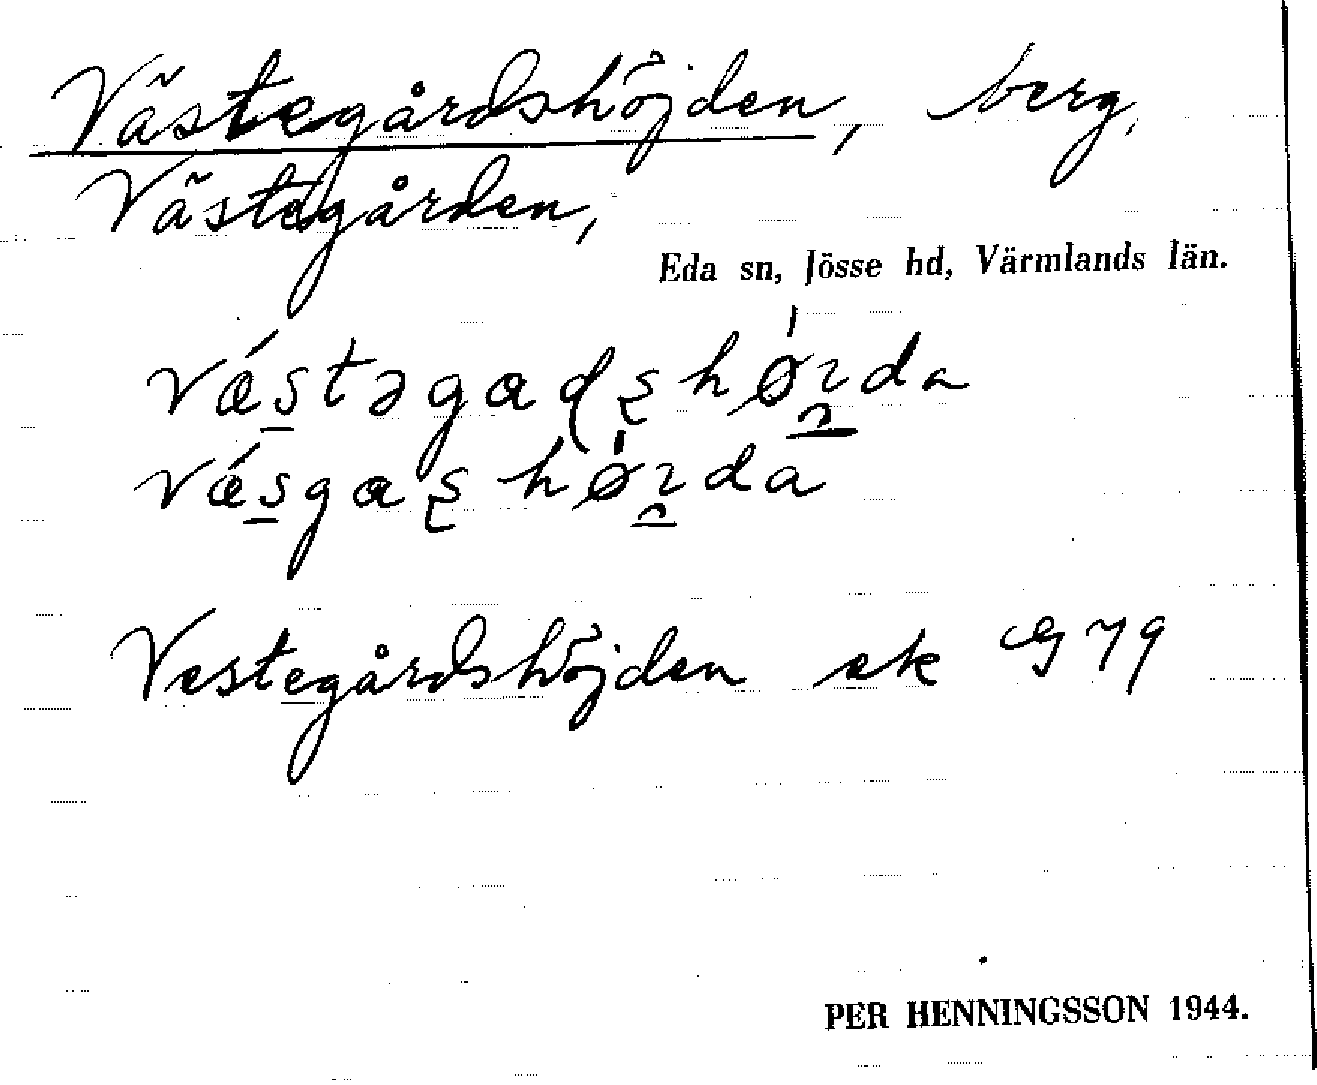 Västegårdshöjden, berg,
Västegården,
Eda sn, Jösse hd, Värmlands län.
Vestegårdshöjden ek G 79
PER HENNINGSSON 1944.